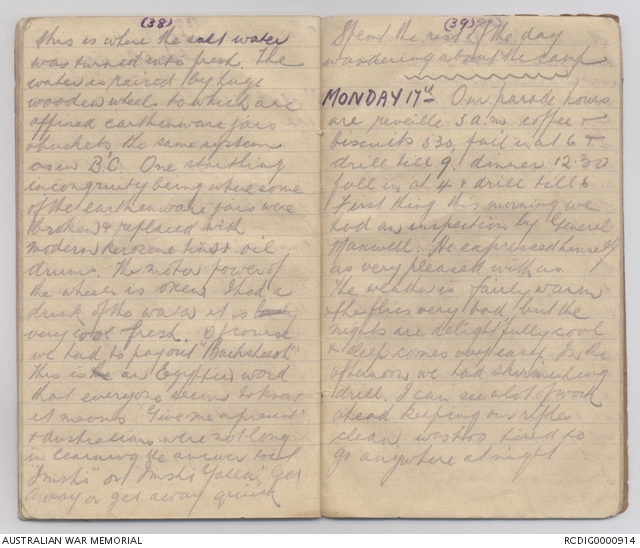 (38)
this is where the salt water
was turned into fresh. The
water is raised by huge
wooden wheels to which are
affixed earthenware jars
& buckets the same system
as in B.C. One startling
incongruity being where some
of the earthenware jars were
broken & replaced with
modern kerozene tins & oil
drums. The motor power of
the wheels is oxen I had a
drink of the water it is
very cool & fresh. Of course
we had to pay out "Backsheesh"
this is an Egyptian word
that everyone seems to know
it means "Give me a present"
& Australians were not long
in learning the answer to it
"Imshi" or "Imshi Yalla", Get
away or get away quick
(39)
Spent the rest of the day
wandering about the camp
MONDAY 17th Our parade hours
are reveille 5 a.m. coffee &
biscuits 530, fall in at 6 &
drill till 9. dinner 12.30
fall in at 4 & drill till 6.
First thing this morning we
had an inspection by General
Maxwell. He expressed himself
as very pleased with us.
The weather is fairly warm
& the flies very bad but the
nights are delightfully cool
& sleep comes very easy. In the
afternoon we had skirmishing
drill. I can see a lot of work
ahead keeping our rifles
clean, was too tired to
go anywhere at night
AUSTRALIAN WAR MEMORIAL
RCDIG0000914